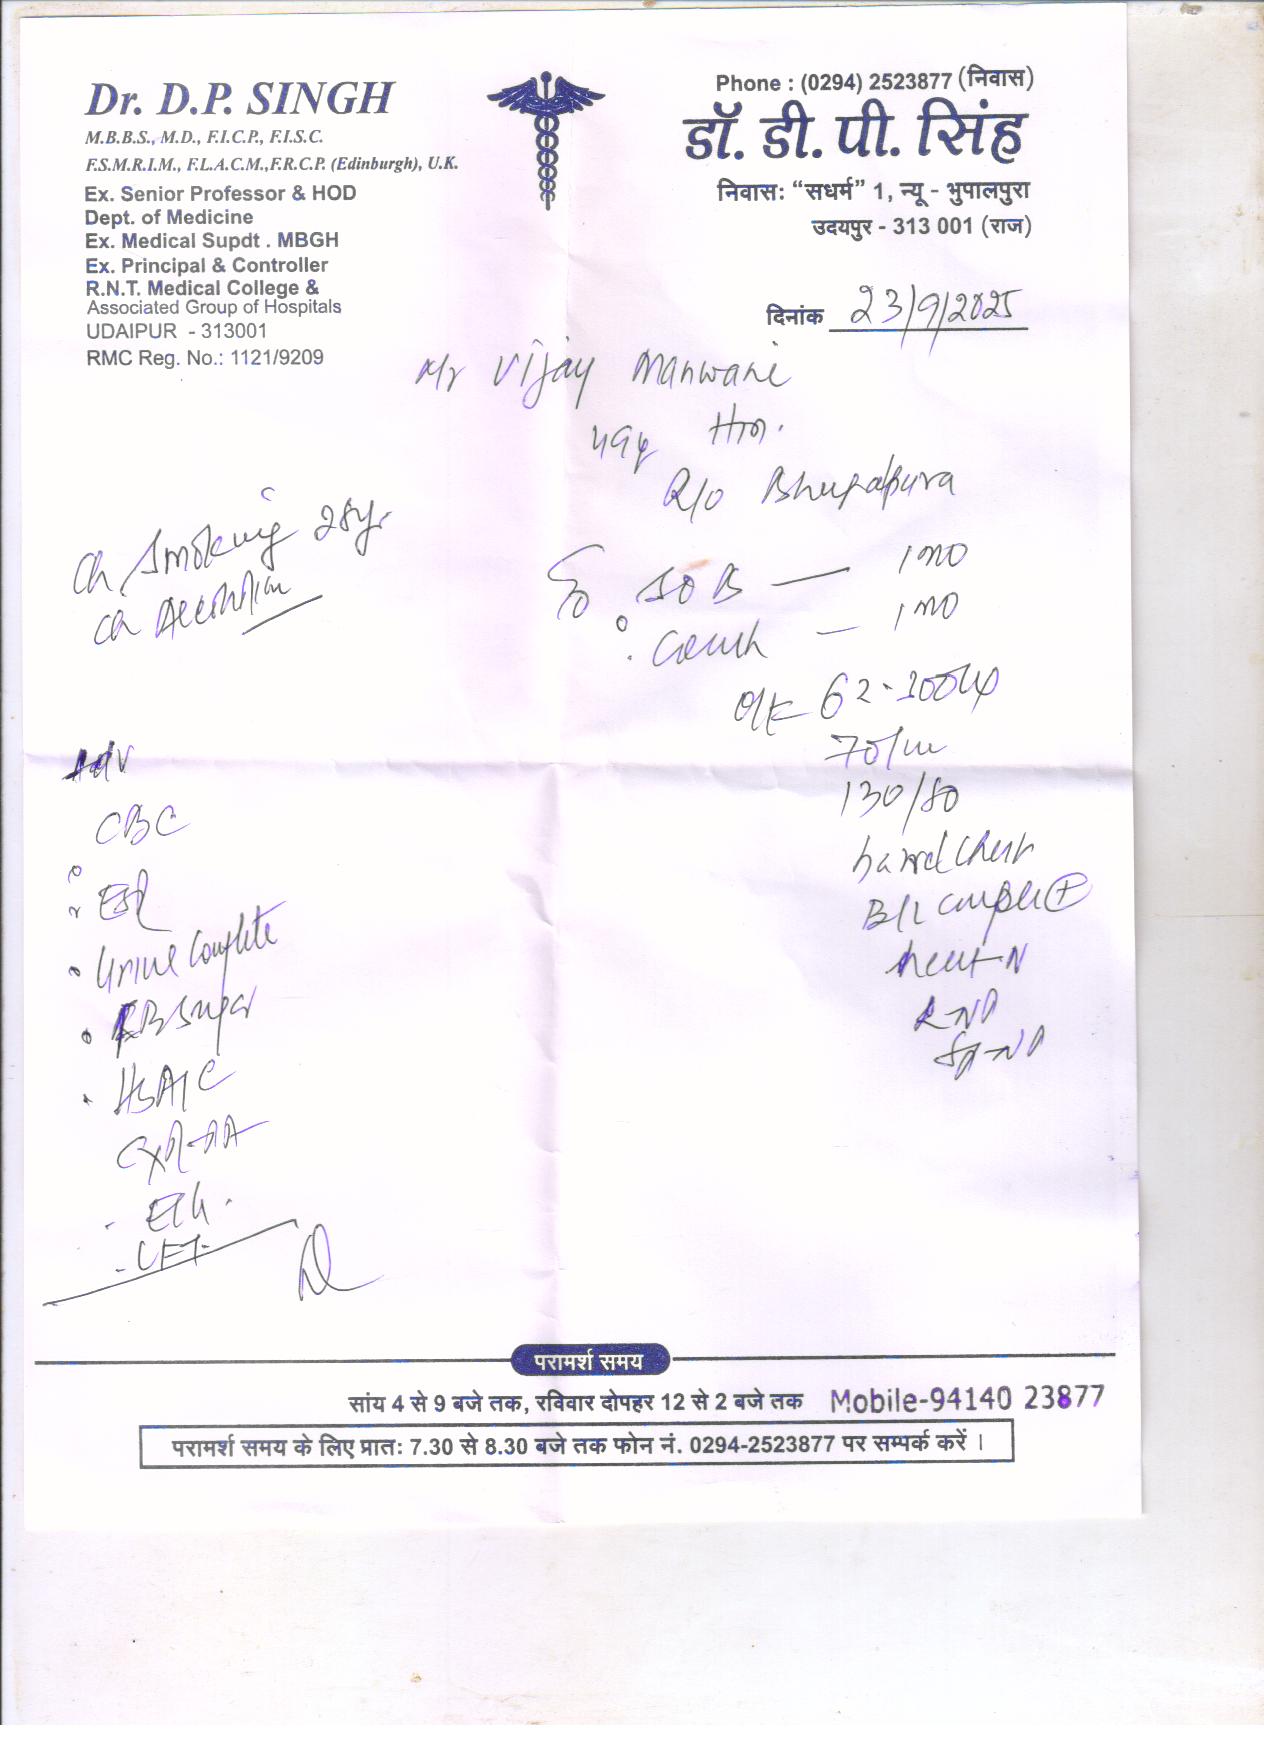 Dr. D.P. SINGH
M.B.B.S., M.D., F.I.C.P., F.I.S.C.
F.S.M.R.I.M., F.L.A.C.M.,F.R.C.P. (Edinburgh), U.K.
Ex. Senior Professor & HOD
Dept. of Medicine
Ex. Medical Supdt . MBGH
Ex. Principal & Controller
R.N.T. Medical College &
Associated Group of Hospitals
UDAIPUR - 313001
RMC Reg. No.: 1121/9209
Phone : (0294) 2523877 (निवास)
डॉ. डी. पी. सिंह
निवास: “सधर्म” 1, न्यू - भुपालपुरा
उदयपुर - 313 001 (राज)
दिनांक 23/9/2025
Mr Vijay Manwani
49y Hm.
R/o Bhupalpura
Ch Smoking 28yr
Ch
SOB — 1 mo
Cough — 1 mo
O/E 62.
70/m
130/80
Chest
B/L
Heart-N
Adv
CBC
ESR
Urine Complete
Sugar
HbA1C
CXR-PA
ECG.
LFT
परामर्श समय
सांय 4 से 9 बजे तक, रविवार दोपहर 12 से 2 बजे तक Mobile-94140 23877
परामर्श समय के लिए प्रातः 7.30 से 8.30 बजे तक फोन नं. 0294-2523877 पर सम्पर्क करें ।